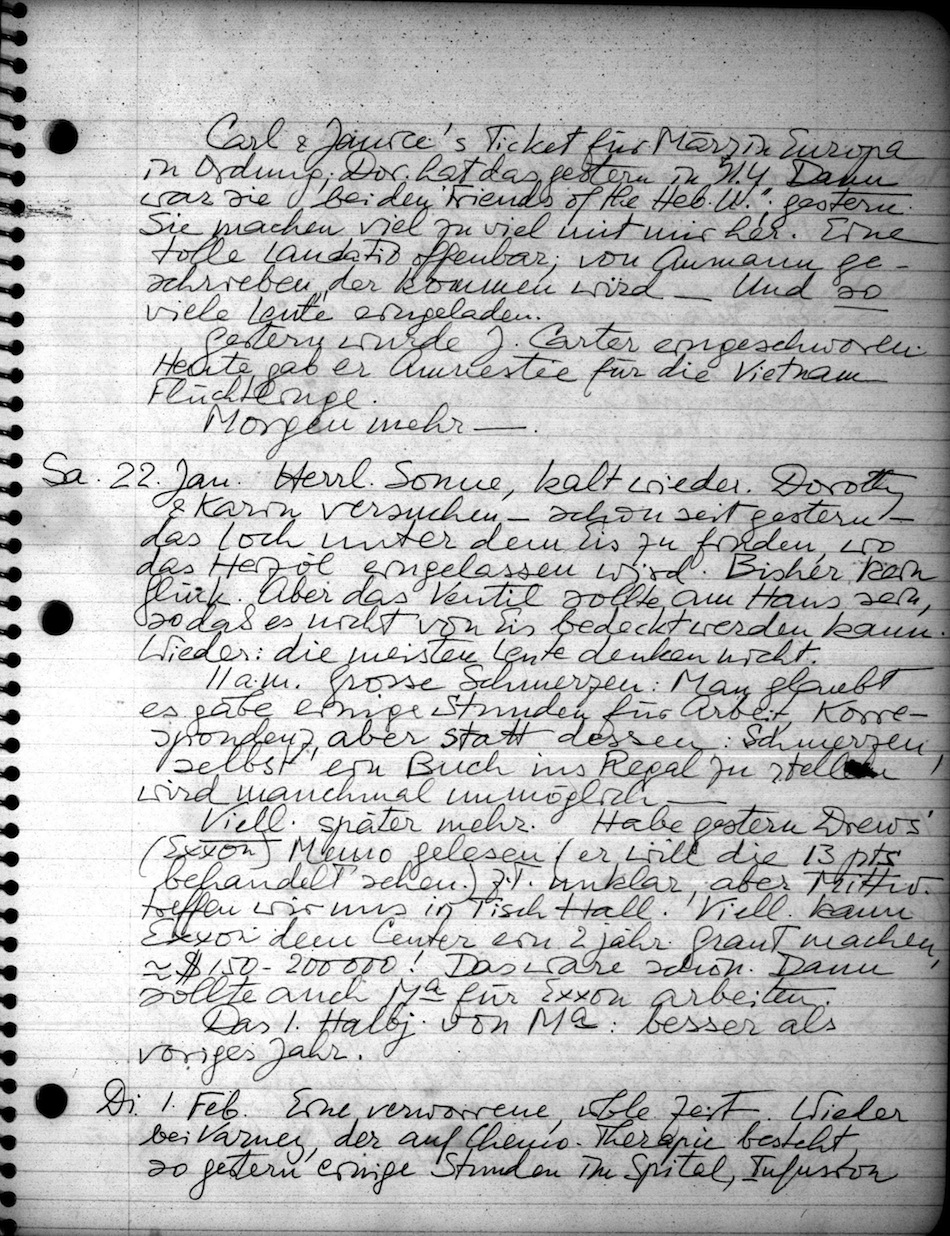 Carl & Janice's Ticket für März in Europa
in Ordnung. Dor. hat das gestern in N.Y. Dann
war sie bei den "Friends of the Heb. U." gestern.
Sie machen viel zu viel mit mir her. Eine
tolle Laudatio offenbar, von Aumann ge-
schrieben, der kommen wird — Und so
viele Leute eingeladen.
Gestern wurde J. Carter eingeschworen.
Heute gab er Amnestie für die Vietnam
Flüchtlinge.
Morgen mehr —.
Sa. 22. Jan. Herrl. Sonne, kalt wieder. Dorothy
& Karin versuchen — schon seit gestern —
das Loch unter dem Eis zu finden, wo
das Heizöl eingelassen wird. Bisher kein
Glück. Aber das Ventil sollte am Haus sein,
so daß es nicht von Eis bedeckt werden kann.
Wieder: die meisten Leute denken nicht.
11 a.m. Grosse Schmerzen: Man glaubt
es gäbe einige Stunden für Arbeit, Korre-
spondenz, aber statt dessen: Schmerzen
selbst ein Buch ins Regal zu stellen
wird manchmal unmöglich —
Viell. später mehr. Habe gestern Drews'
(Exxon) Memo gelesen (er will die 13 pts
behandelt sehen.) z.T. unklar, aber Mittw.
treffen wir uns in Tisch Hall. Viell. kann
Exxon dem Center ein 2 jähr. Grant machen,
≈ $150-200000! Das wäre schön. Dann
sollte auch Ma für Exxon arbeiten.
Das 1. Halbj. von Ma: besser als
voriges Jahr.
Di. 1. Feb. Eine verworrene, üble Zeit. Wieder
bei Varney, der auf Chemo-Therapie besteht,
so gestern einige Stunden im Spital, Infusion